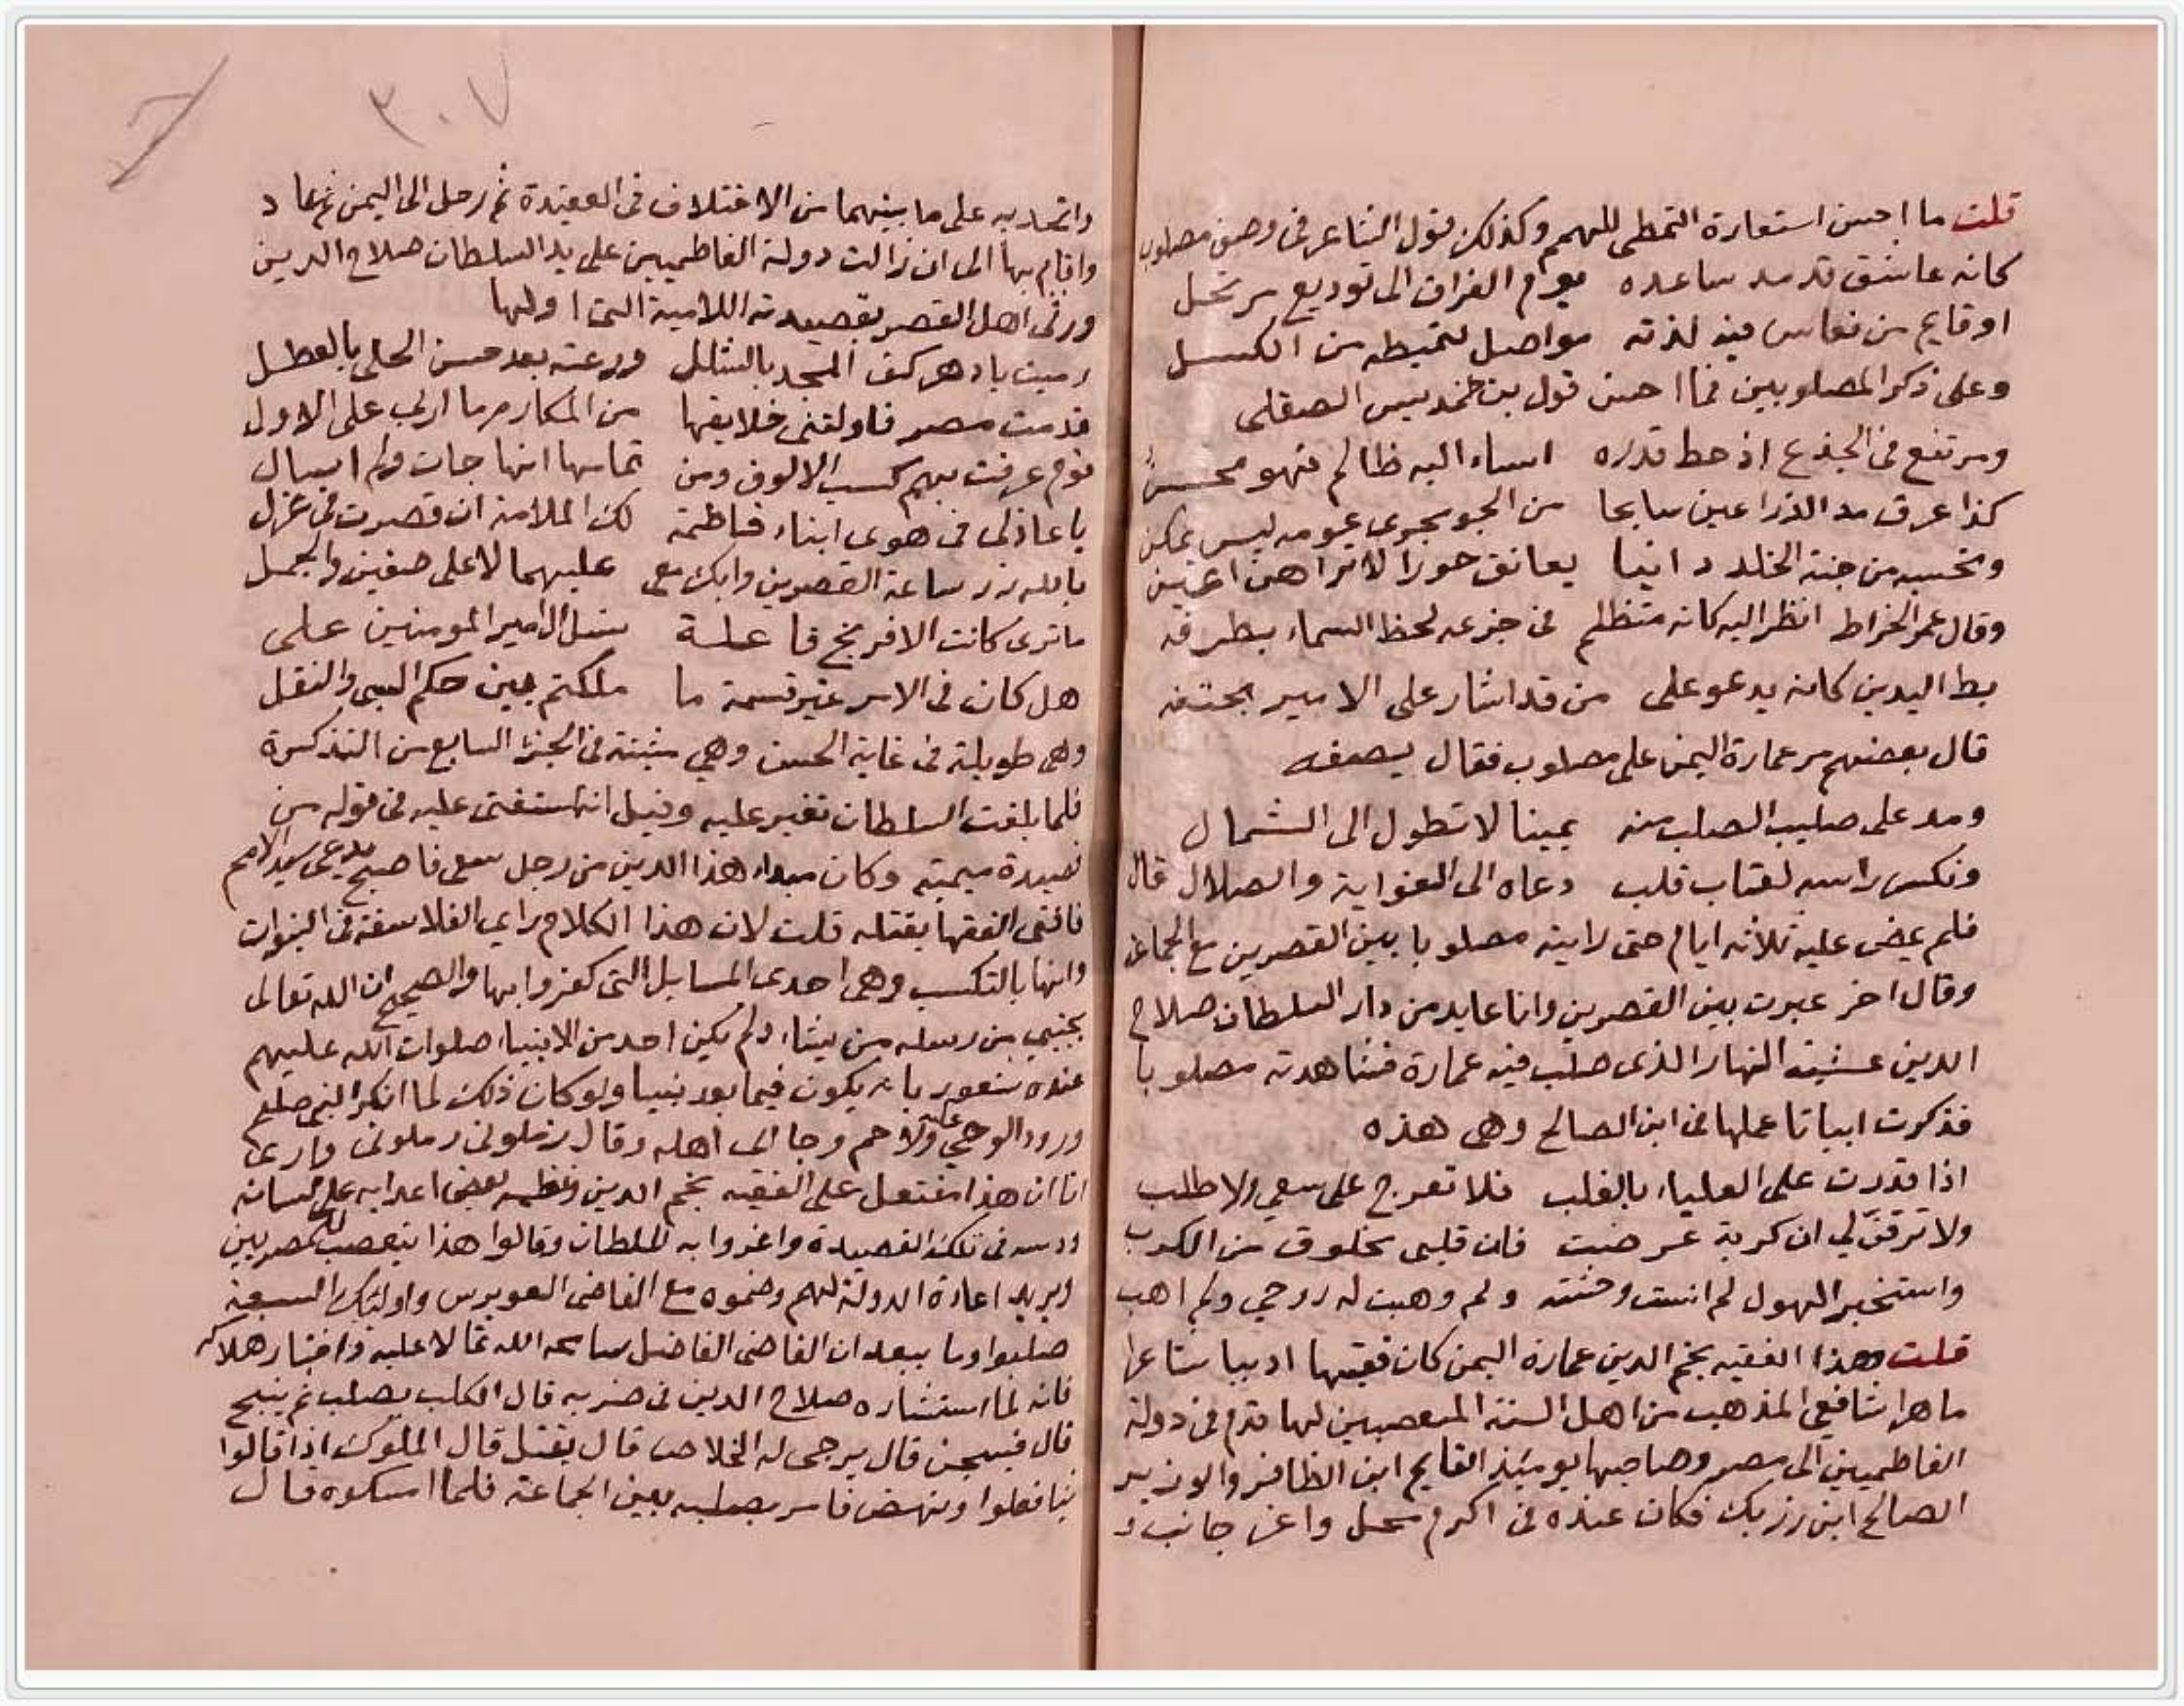 قلت ما احسن استعارة التمطى للهمم وكذلك قول الشاعر فى وصف مصلوب
كانه عاشق قد مد ساعده يوم الفراق الى توديع مرتحل
او قايم من نعاس فيه لذته مواصل لتمطيه من الكسل
وعلى ذكر المصلوبين فما احسن قول بن حمديس الصقلى
ومرتفع فى الجذع اذ حط قدره اساء اليه ظالم فهو محسن
كذا غرق مد الذراعين سابحا من الجو بحرى عومه ليس يمكن
وتحسبه من جنة الخلد دانيا يعانق حورا لا تراهن اعين
وقال عمر الخراط انظر اليه كانه متظلم فى جزعه لحظ السماء بطرفه
بط اليدين كانه يدعو على من قد اشار على الامير بحتفه
قال بعضهم مر عمارة اليمن على مصلوب فقال يصفه
ومد على صليب الصلب منه يمينا لا تطول الى الشمال
ونكس راسه لعتاب قلب دعاه الى الغواية والضلال قال
فلم يمض عليه ثلاثه ايام حتى رايته مصلوبا بين القصرين مع الجماعه
وقال اخر عبرت بين القصرين وانا عايد من دار السلطان صلاح
الدين عشية النهار الذى صلب فيه عمارة فشاهدته مصلوبا
فذكرت ابياتا عملها فى ابن الصالح وهى هذه
اذا قدرت على العلياء بالغلب فلا تعرج على سعي ولا طلب
ولا ترقن لي ان كربة عرضت فان قلبى مخلوق من الكرب
واستخبر الهول لم انست وحشته ولم وهبت له روحي ولم اهب
قلت وهذا الفقيه نجم الدين عمارة اليمن كان فقيها اديبا شاعرا
ماهرا شافعي المذهب من اهل السنة المتعصبين لها قدم فى دولة
الفاطميين الى مصر وصاحبها يوميئذ القايم ابن الظافر والوزير
الصالح ابن رزيك فكان عنده فى اكرم محل واعز جانب و
٣٠٧
واتحد به على ما بينهما من الاختلاف فى العقيدة ثم رحل الى اليمن ثم عاد
واقام بها الى ان زالت دولة الفاطميين على يد السلطان صلاح الدين
ورثى اهل القصر بقصيدته اللامية التى اولها
رميت يا دهر كف المجد بالشلل ورعته بعد حسن الحلى بالعطل
قدمت مصر فاولتنى خلايفها من المكارم ما اربى على الاول
قوم عرفت بهم كسب الالوف ومن تمامها انها جات ولم اسال
يا عاذلى فى هوى ابناء فاطمة لك الملامة ان قصرت فى عزل
بالله زر ساعة القصرين وابك معى عليهما لا على صفين والجمل
ما ترى كانت الافرنج فاعلة بنسل ال امير المومنين على
هل كان فى الامر غير قسمة ما ملكتم بين حكم السبى والنفل
وهى طويلة فى غاية الحسن وهي مثبتة فى الجزء السابع من التذكرة
فلما بلغت السلطان تغير عليه وقيل انه استفتى عليه فى قوله من
قصيدة ميمية وكان مبداء هذا الدين من رجل سعى فاصبح يدعى سيد الامم
فافتى الفقها بقتله قلت لان هذا الكلام راى الفلاسفة فى النبوات
وانها بالتكسب وهى احدى المسايل التى كفروا بها والصحيح ان الله تعالى
يجتبي من رسله من يشاء ولم يكن احد من الانبياء صلوات الله عليهم
عنده شعور بانه يكون فيما بعد نبيا ولو كان ذلك لما انكر النبى صلعم
ورود الوحى عليه ولاحم وجا الى اهله وقال زملونى زملونى وارى
انا ان هذا مفتعل على الفقيه نجم الدين ونظمه بعض اعدايه على لسانه
ودسه فى تلك القصيدة واغروا به السلطان وقالوا هذا يتعصب للمصريين
ويريد اعادة الدولة لهم وضموه مع القاضى العويرس واولئك السبعة
صلبوا وما يبعد ان القاضى الفاضل سامحه الله تمالا عليه واختار هلاكه
فانه لما استشاره صلاح الدين فى ضربه قال الكلب يضرب ثم ينبح
قال فيسجن قال يرجى له الخلاص قال يقتل قال الملوك اذا قالوا
شيا فعلوا ونهض فامر بصلبه بين الجماعة فلما امسكوه قال